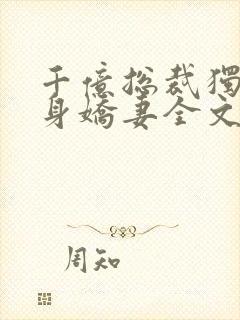 千億総裁獨
身嬌妻全文
周知